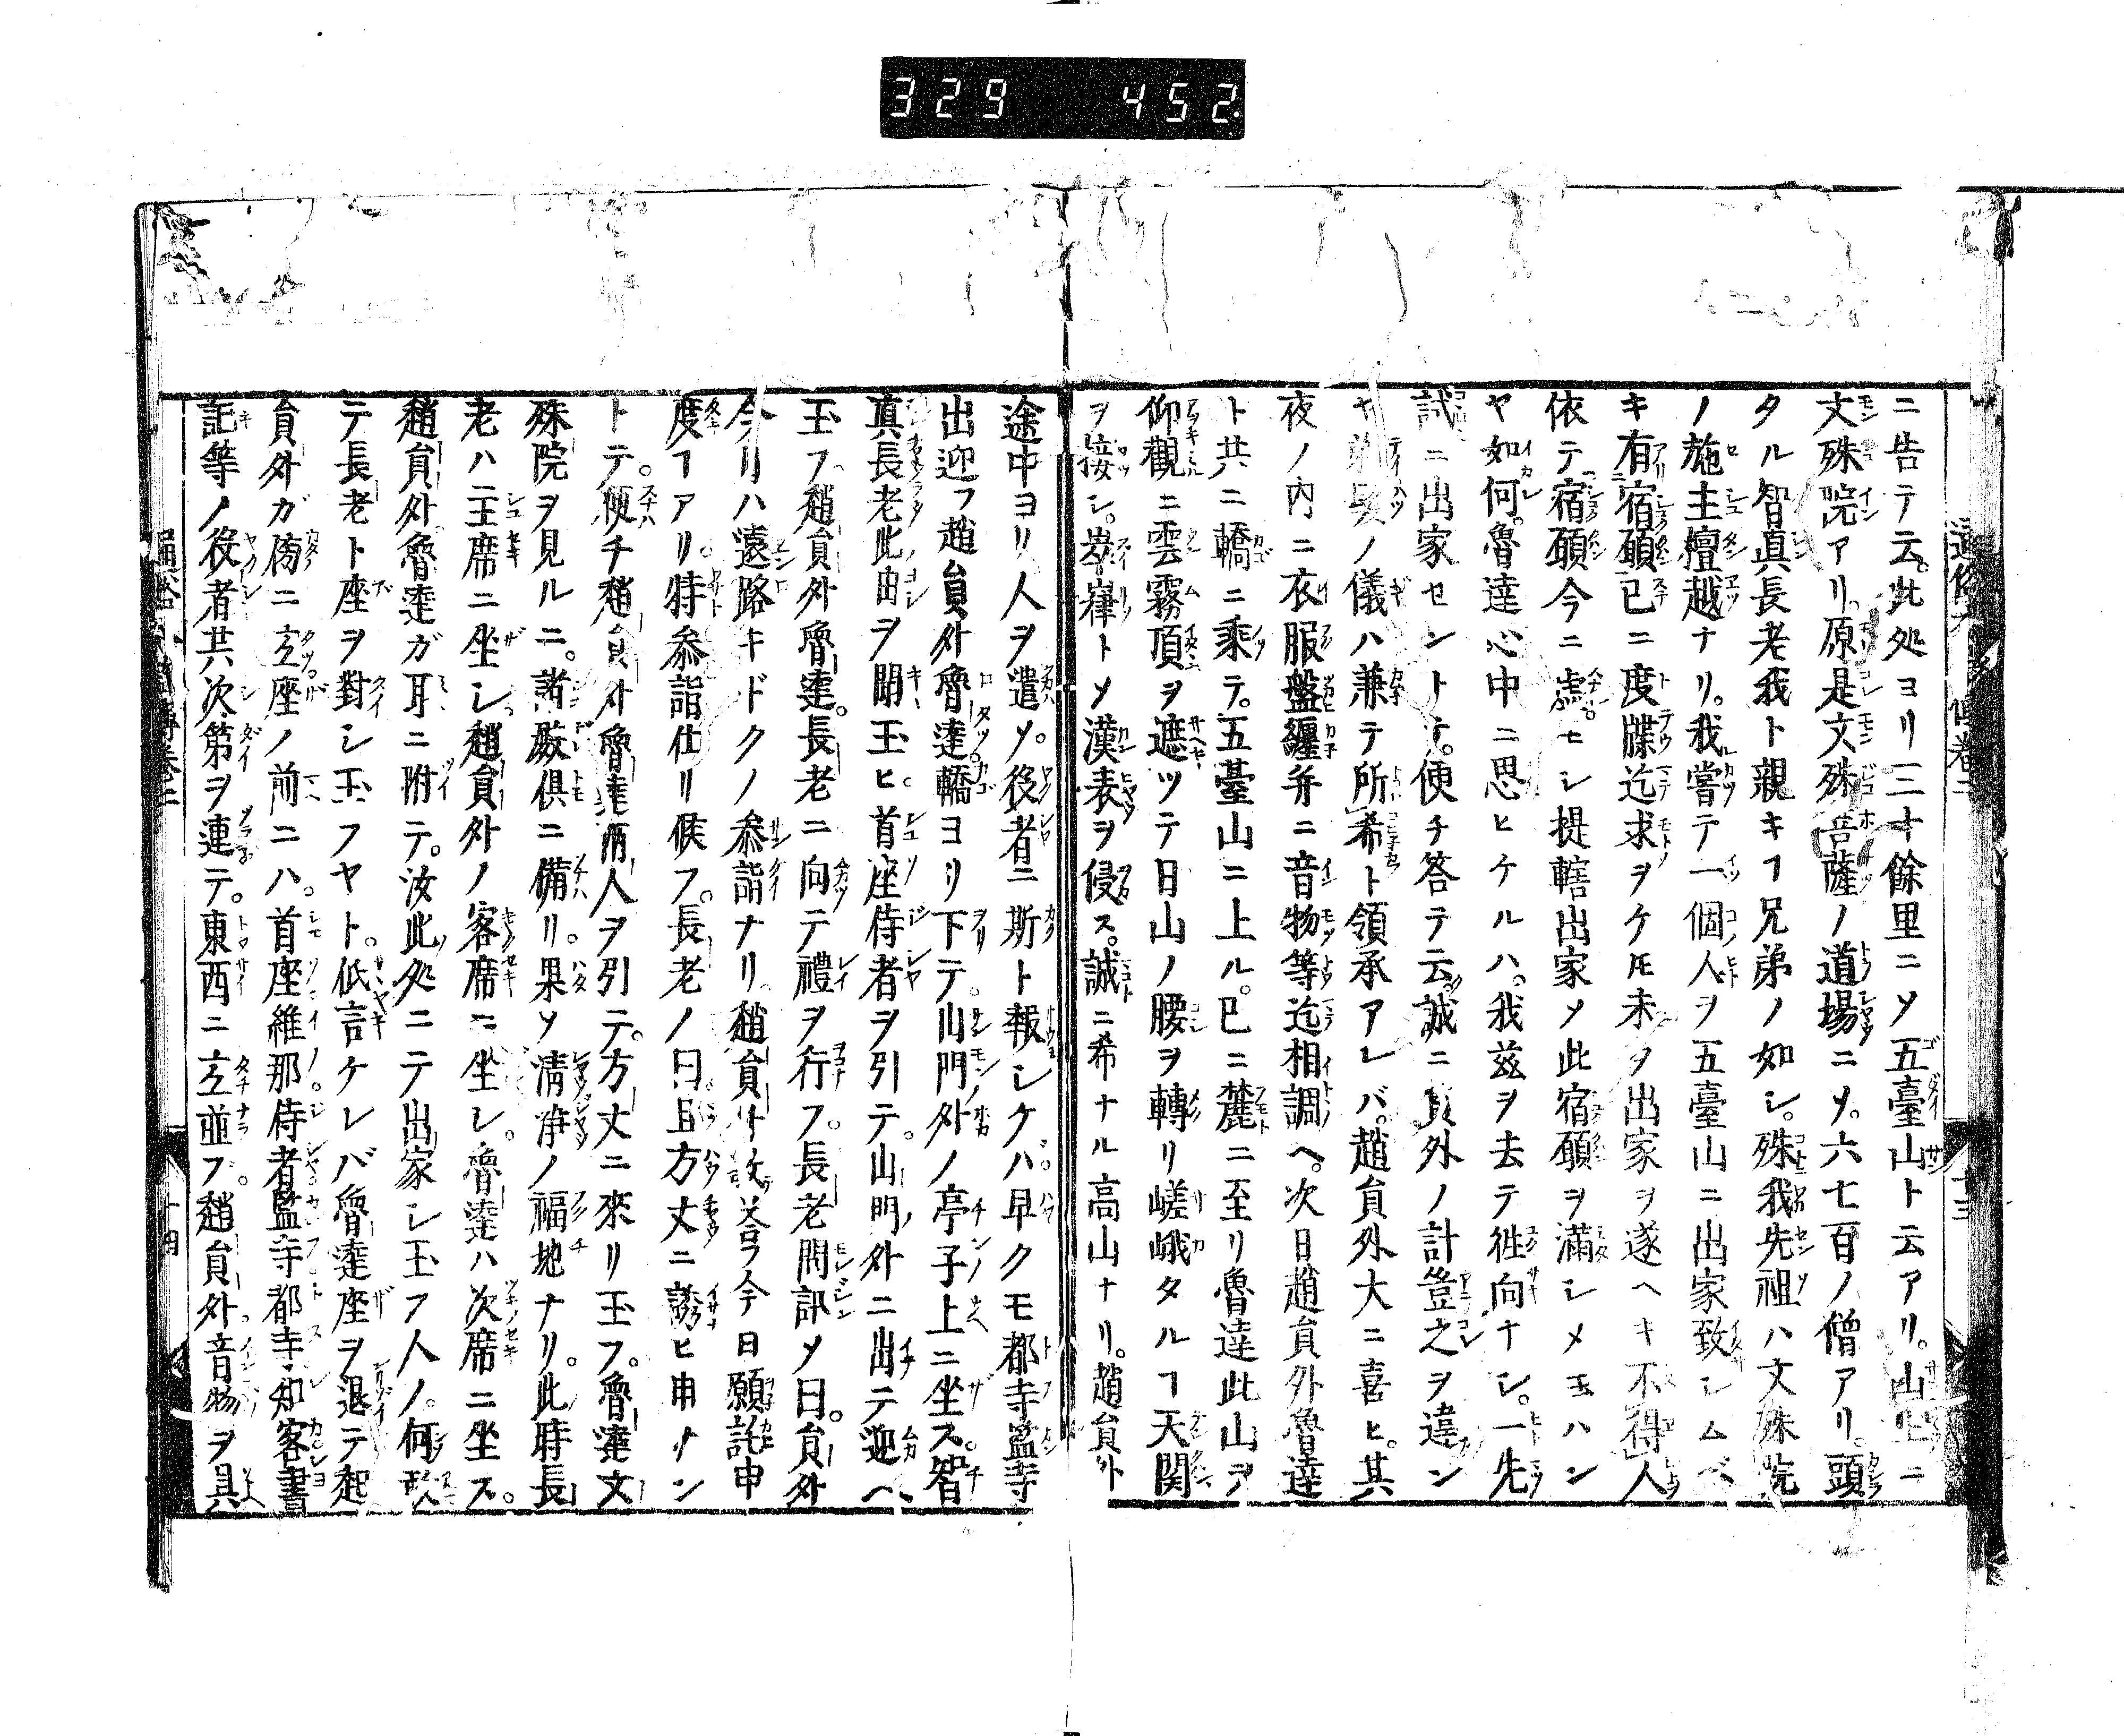 329 452
ニ告テ云。此処ヨリ三十餘里ニソ五臺山ト云アリ。山上ニ
文殊院アリ。原是文殊菩薩ノ道場ニソ。六七百ノ僧アリ。頭
タル智真長老我ト親キヿ兄弟ノ如シ。殊我先祖ハ文殊院
ノ施主檀越ナリ。我嘗テ一個人ヲ五臺山ニ出家致シムベ
キ有宿願已ニ度牒迄求ヲケ𪜈未タ出家ヲ遂ヘキ不得人
依テ宿願今ニ虚セシ提轄出家メ此宿願ヲ満シメ玉ハン
ヤ如何。魯達心中ニ思ヒケルハ。我兹ヲ去テ徃向ナシ。一先
試ニ出家セントテ。便チ答テ云。誠ニ員外ノ計豈之ヲ違ン
ヤ剃髪ノ儀ハ兼テ所希ト領承アレバ。趙員外大ニ喜ヒ。其
夜ノ内ニ衣服盤纏并ニ音物等迄相調ヘ。次日趙員外魯達
ト共ニ轎ニ乘テ。五臺山ニ上ル。已ニ麓ニ至リ魯達此山ヲ
仰觀ニ雲霧頂ヲ遮ツテ日山ノ腰ヲ轉リ嵯峨タルヿ天関
ヲ接シ。崒嵂トメ漢表ヲ侵ス。誠ニ希ナル高山ナリ。趙員外
途中ヨリ人ヲ遣ソ。役者ニ斯ト報シケバ。早クモ都寺監寺
出迎フ趙員外魯達轎ヨリ下テ。山門外ノ亭子上ニ坐ス。智
真長老此由ヲ聞玉ヒ。首座侍者ヲ引テ。山門外ニ出テ迎ヘ
玉フ。趙員外魯達。長老ニ向テ禮ヲ行フ。長老問訊メ曰。員外
今日ハ遠路キドクノ参詣ナリ。趙員外答今日願託申
度ヿアリ。特参詣仕リ候フ。長老ノ曰且方丈ニ誘ヒ申サン
トテ。便チ趙員外魯達両人ヲ引テ。方丈ニ來リ玉フ。魯達文
殊院ヲ見ルニ。諸厳俱ニ備リ。果メ清浄ノ福地ナリ。此時長
老ハ主席ニ坐シ。趙員外ノ客席ニ坐シ。魯達ハ次席ニ坐ス。
趙員外魯達ガ耳ニ附テ。汝此処ニテ出家シ玉フ人ノ。何
テ長老ト座ヲ對シ玉フヤト。低言ケレバ魯達座ヲ退テ起
員外ガ傍ニ立座ノ前ニハ。首座維那侍者監寺都寺知客書
記等ノ役者共次第ヲ連テ。東西ニ立並フ。趙員外音物ヲ具